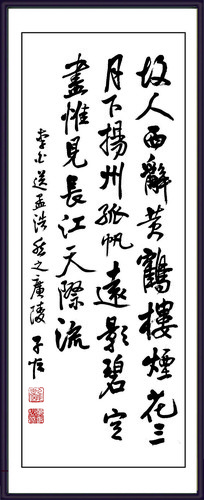 故人西辭黃鶴樓煙花三
月下揚州孤帆遠影碧空
盡惟見長江天際流
李白送孟浩然之廣陵